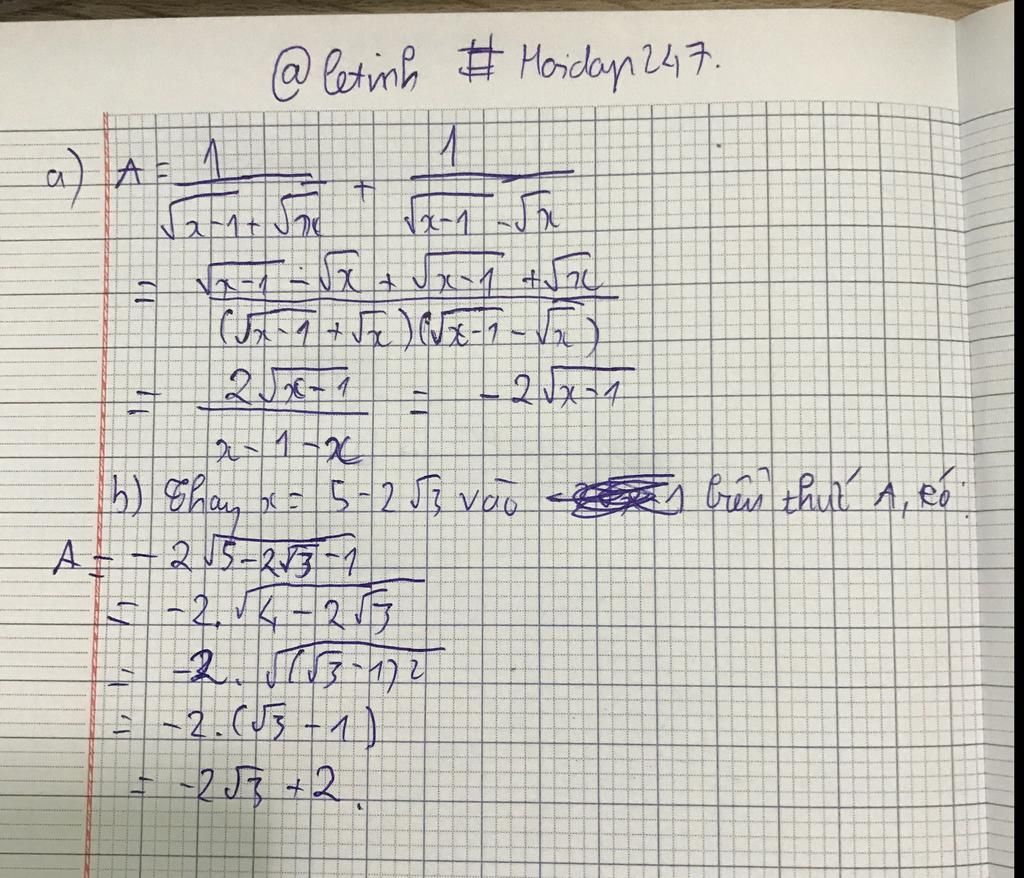 @letinh # Hoidap247.
a) A = 1/(√(x-1) + √x) + 1/(√(x-1) - √x)
= (√(x-1) - √x + √(x-1) + √x)/((√(x-1) + √x)(√(x-1) - √x))
= 2√(x-1)/(x-1-x) = -2√(x-1)
b) Thay x = 5-2√3 vào biểu thức A, có:
A = -2√(5-2√3-1)
= -2.√(4-2√3)
= -2.√((√3-1)²)
= -2.(√3-1)
= -2√3+2.